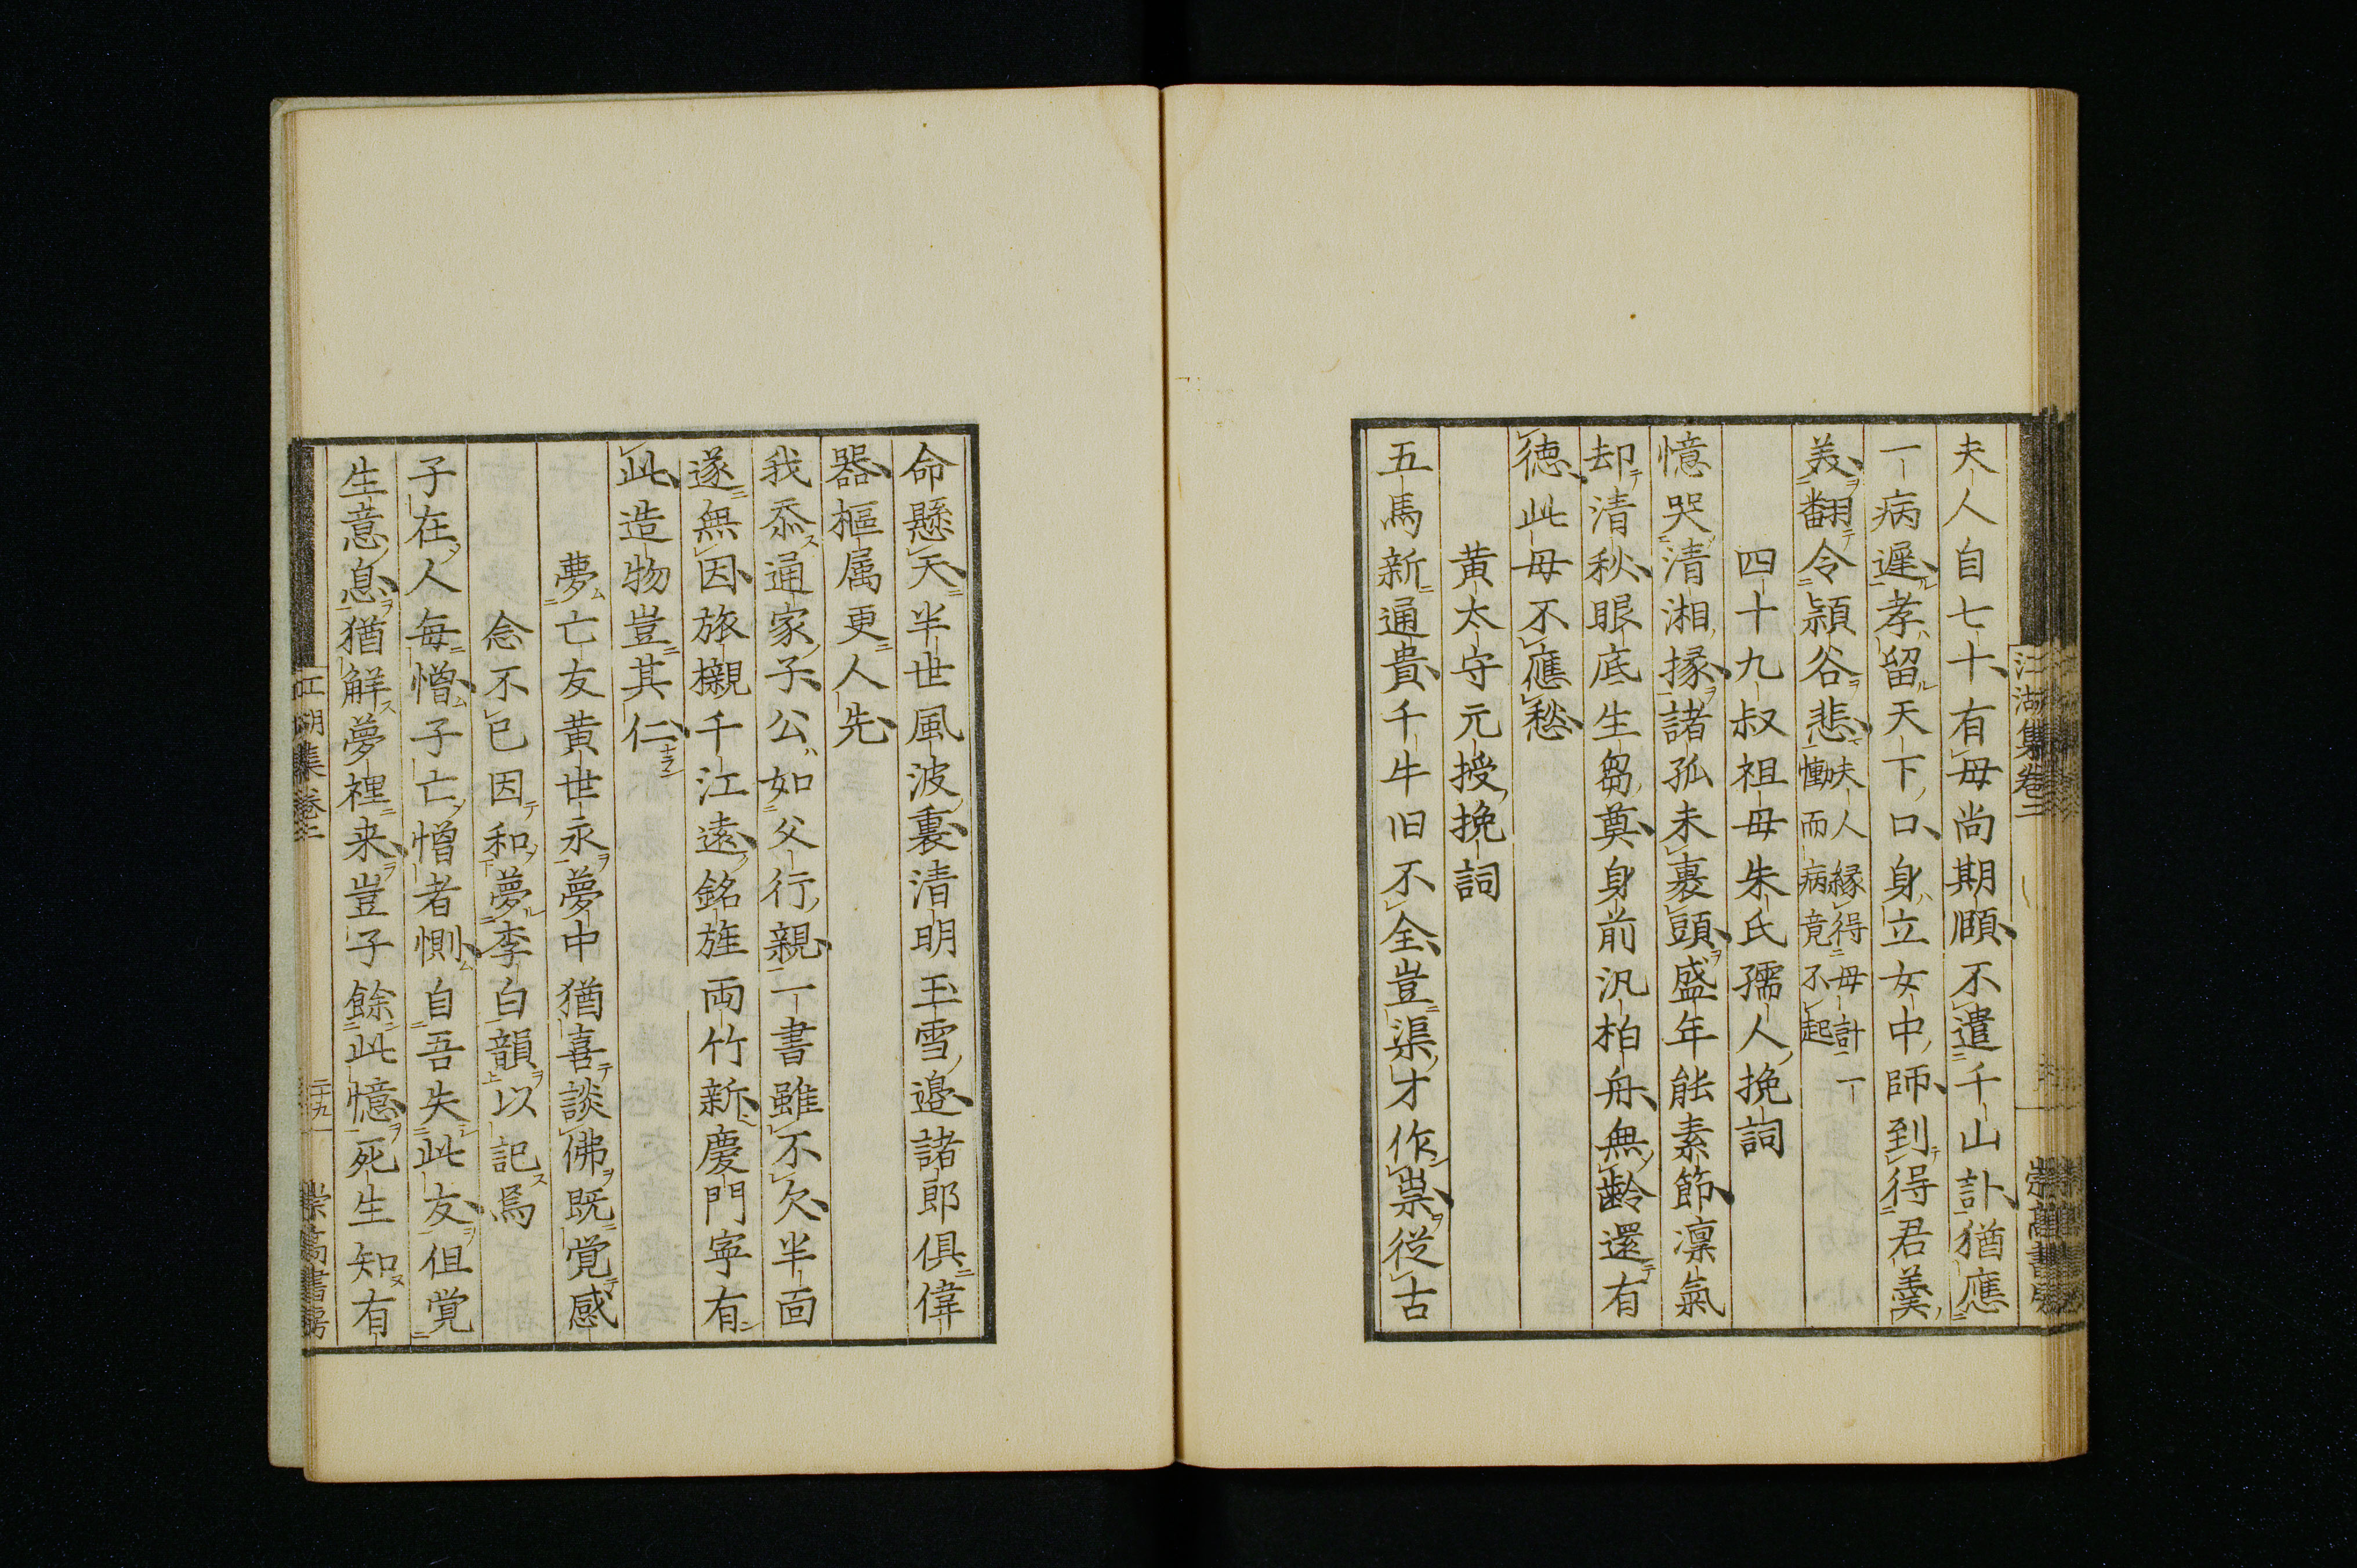 江湖集卷二
夫人自七十有母尚期頤不遣千山訃猶應
一病遲孝留天下口身立女中師到得君羹
美翻令潁谷悲夫人縁得母計一
慟而病竟不起
四十九叔祖母朱氏孺人挽詞
憶哭清湘掾諸孤未裹頭盛年能素節凛氣
却清秋眼底生芻奠身前汎柏舟無齢還有
徳此母不應愁
黄太守元授挽詞
五馬新通貴千牛旧不全豈渠才作祟従古
命懸天半世風波裏清明玉雪邉諸郎倶偉
器樞属更人先
我忝通家子公如父行親一書雖不欠半面
遂無因旅櫬千江遠銘旌両竹新慶門寧有
此造物豈其仁
夢亡友黄世永夢中猶喜談佛既覚感
念不已因和夢李白韻以記焉
子在人毎憎子亡憎者惻自吾失此友但覚
生意息猶解夢裡来豈子餘此憶死生知有
江湖集卷二
二十九
崇高書房